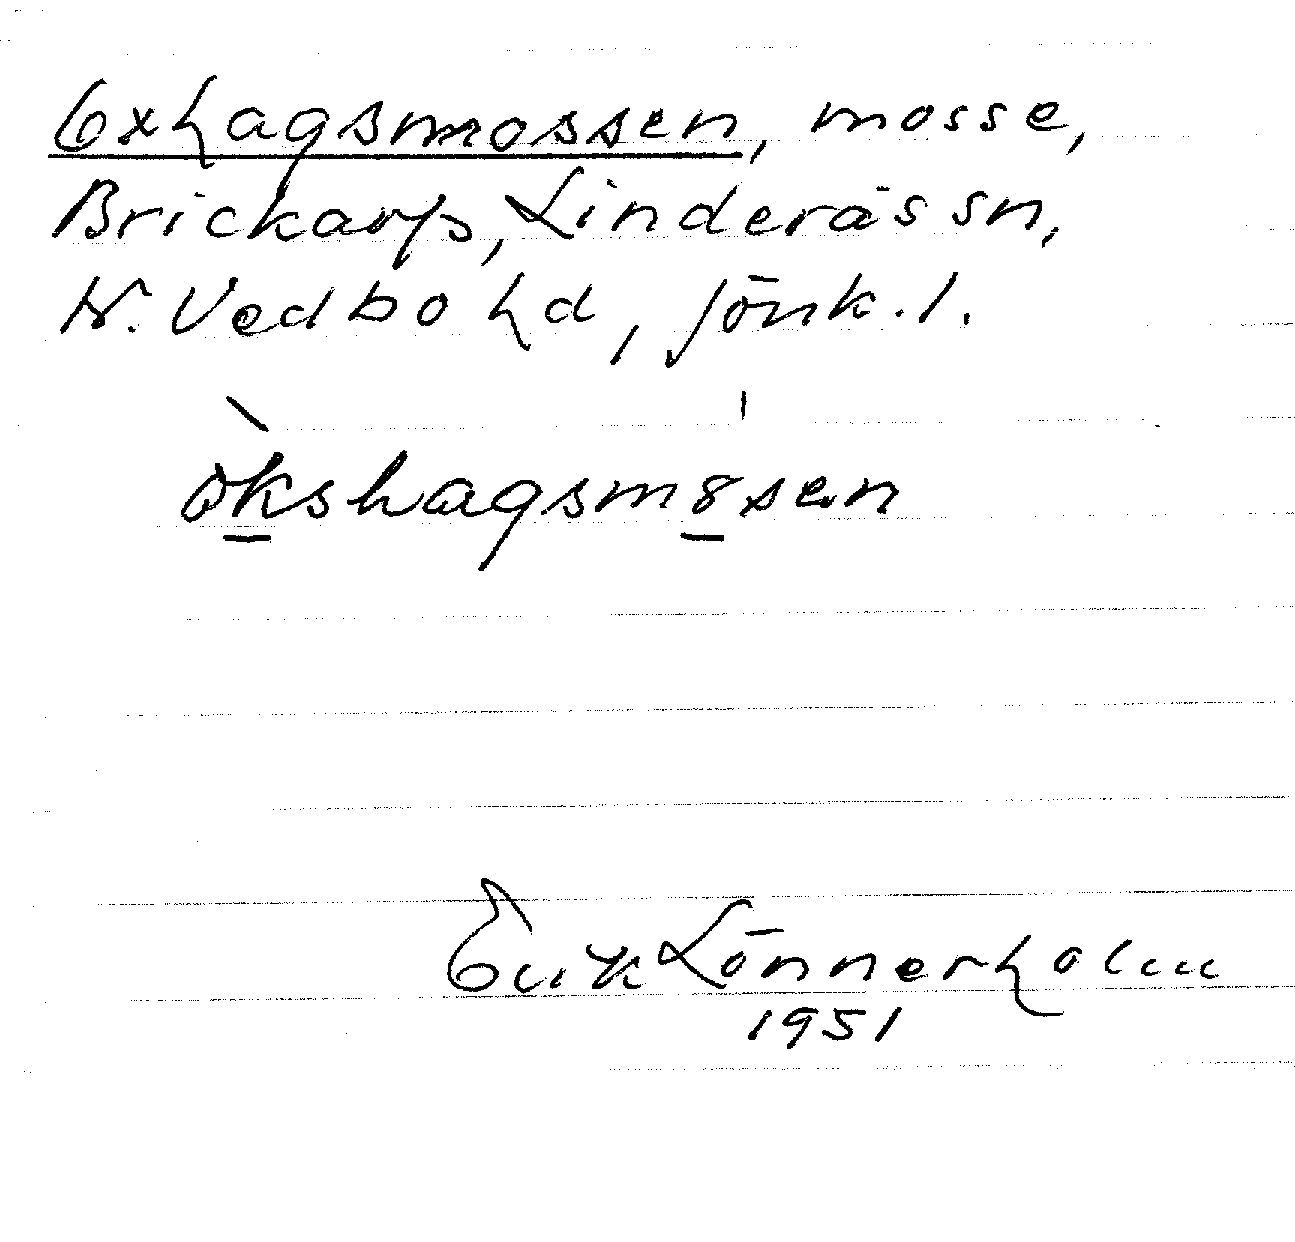 Oxhagsmossen, mosse,
Brickarp, Linderås sn,
N. Vedbo hd, Jönk. l.
òkshagsm8sen
Erik Lönnerholm
1951